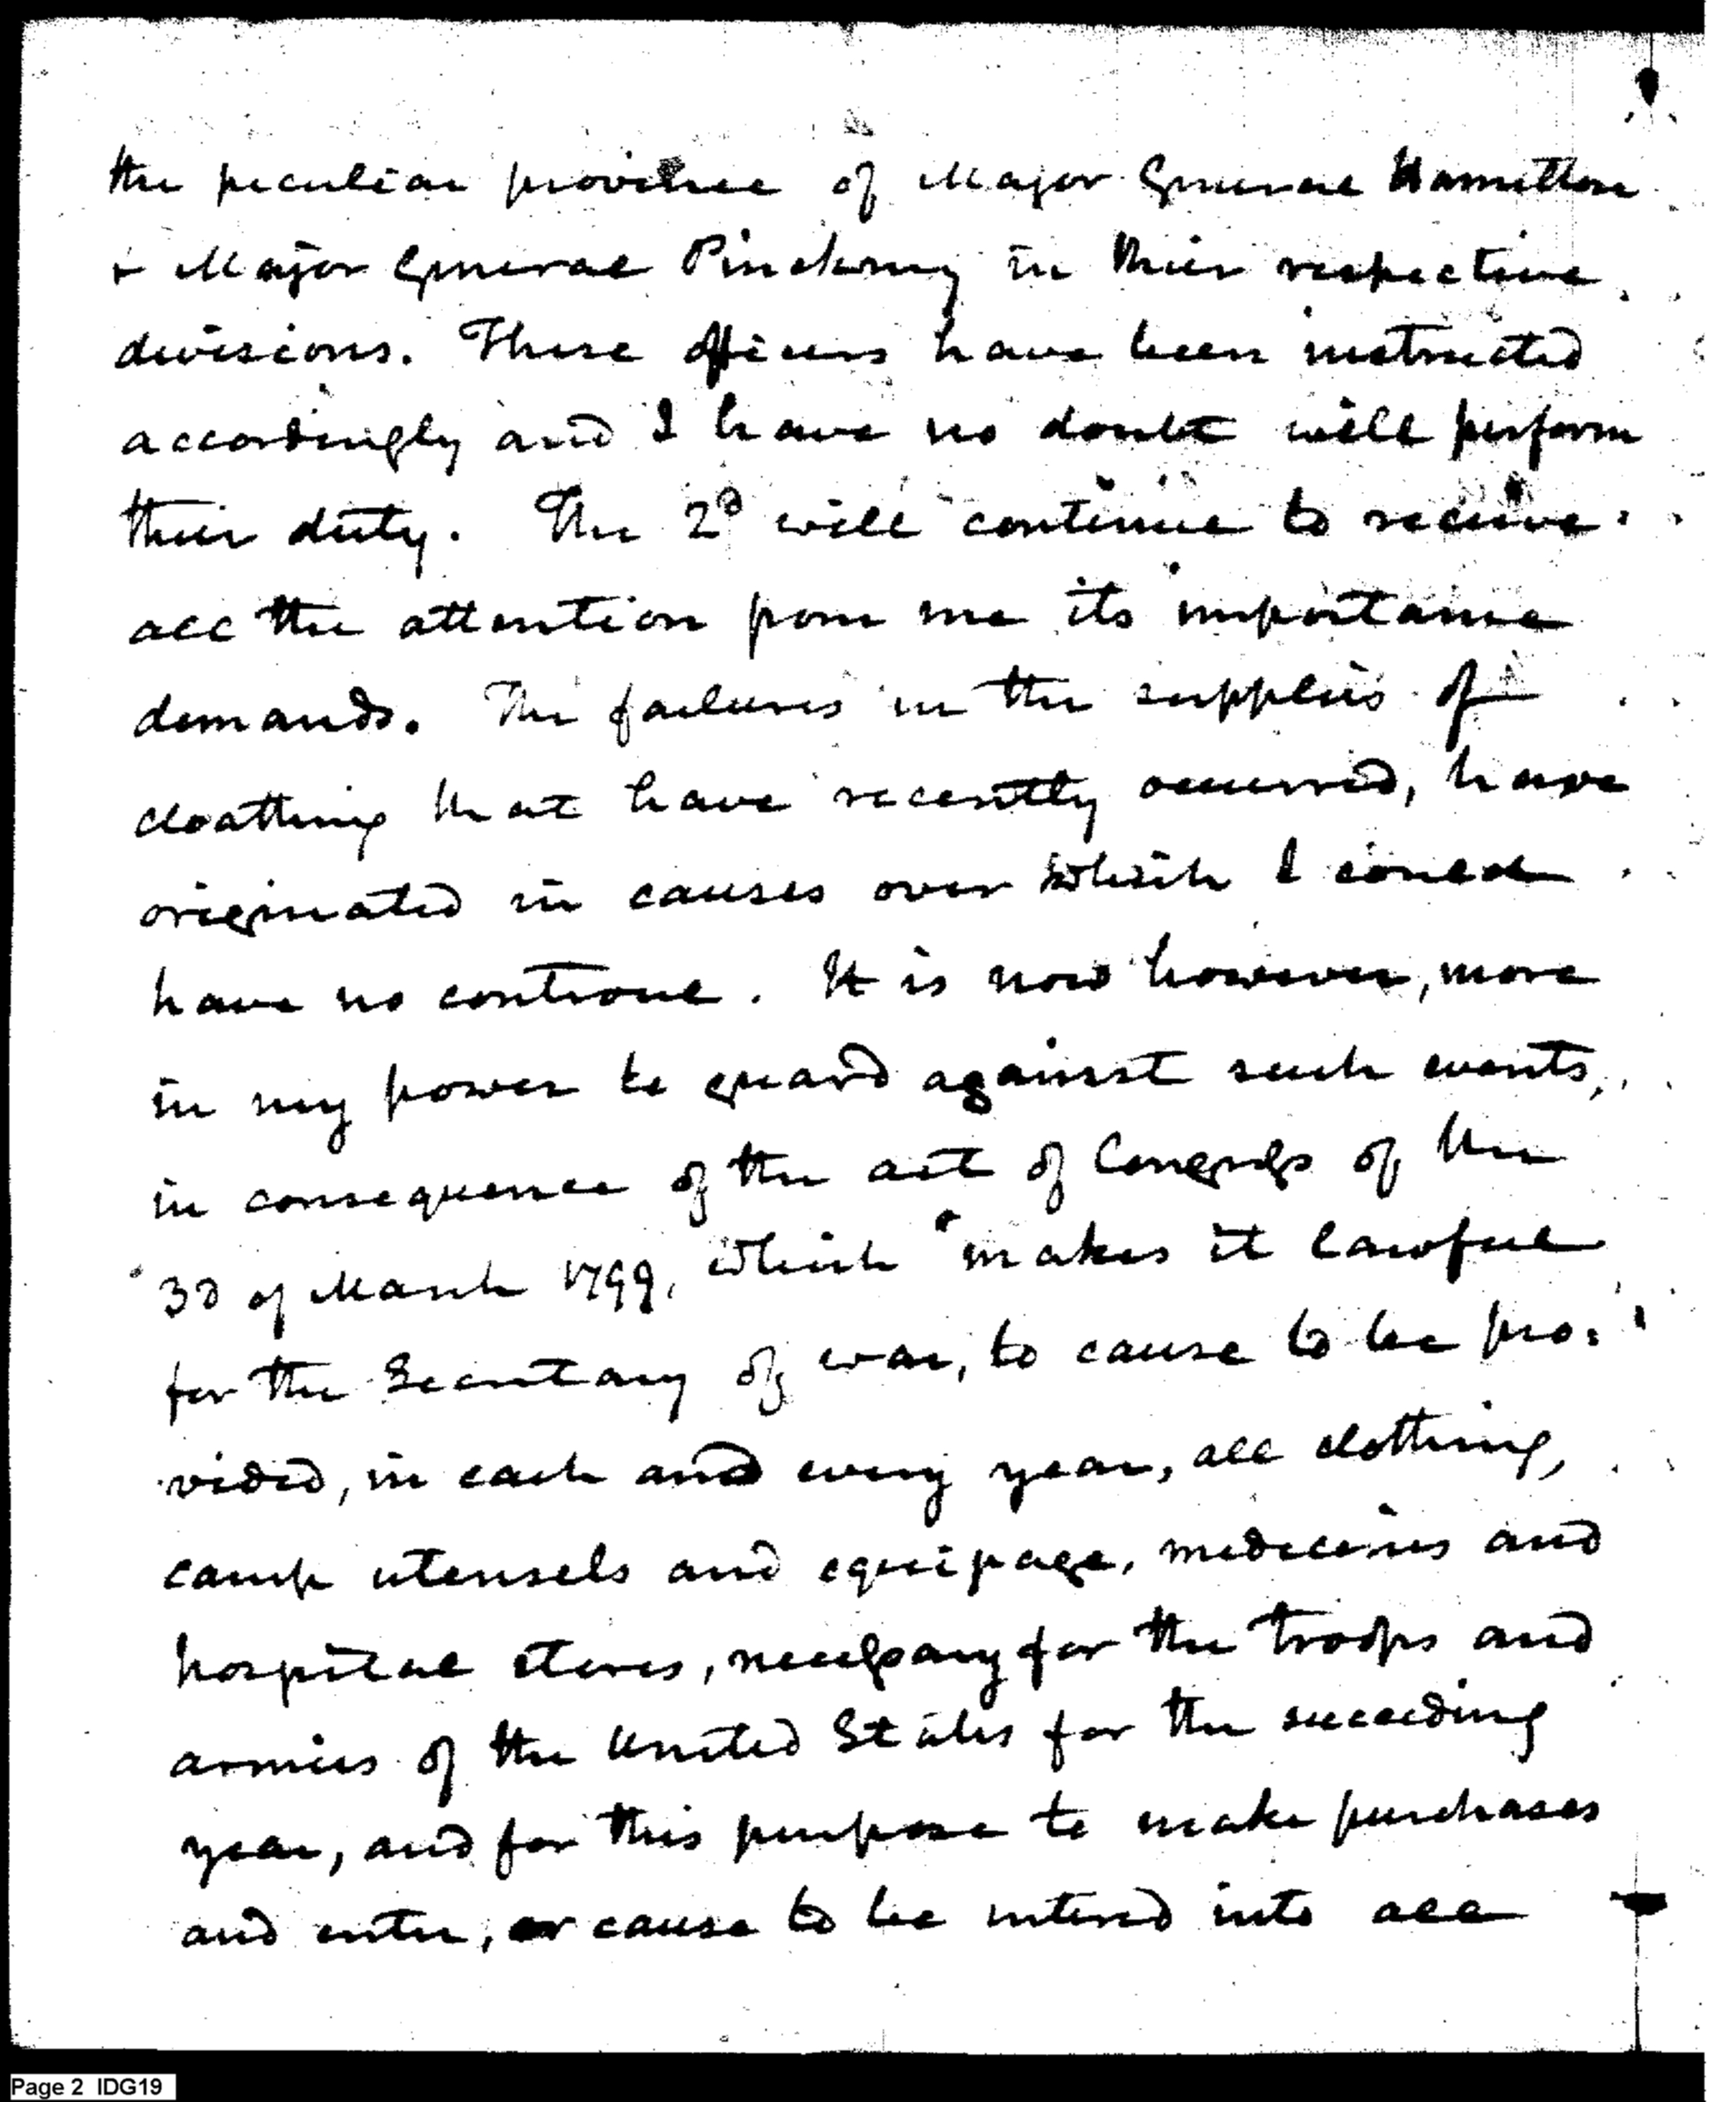 the peculiar province of Major General Hamilton
& Major General Pinckney in their respective
divisions. These officers have been instructed
accordingly and I have no doubt will perform
their duty. The 2d will continue to receive
all the attention from me its importance
demands. The failures in the supplies of
cloathing that have recently occurred, have
originated in causes over which I could
have no controul. It is now however, more
in my power to guard against such events,
in consequence of the act of Congress of the
3d of March 1799, which "makes it lawful
for the Secretary of war, to cause to be pro-
vided, in each and every year, all clothing,
camp utensels and equipage, medecines and
hospital stores, necessary for the troops and
armies of the United States for the succeeding
year, and for this purpose to make purchases
and enter, or cause to be entered into all
Page 2 IDG19